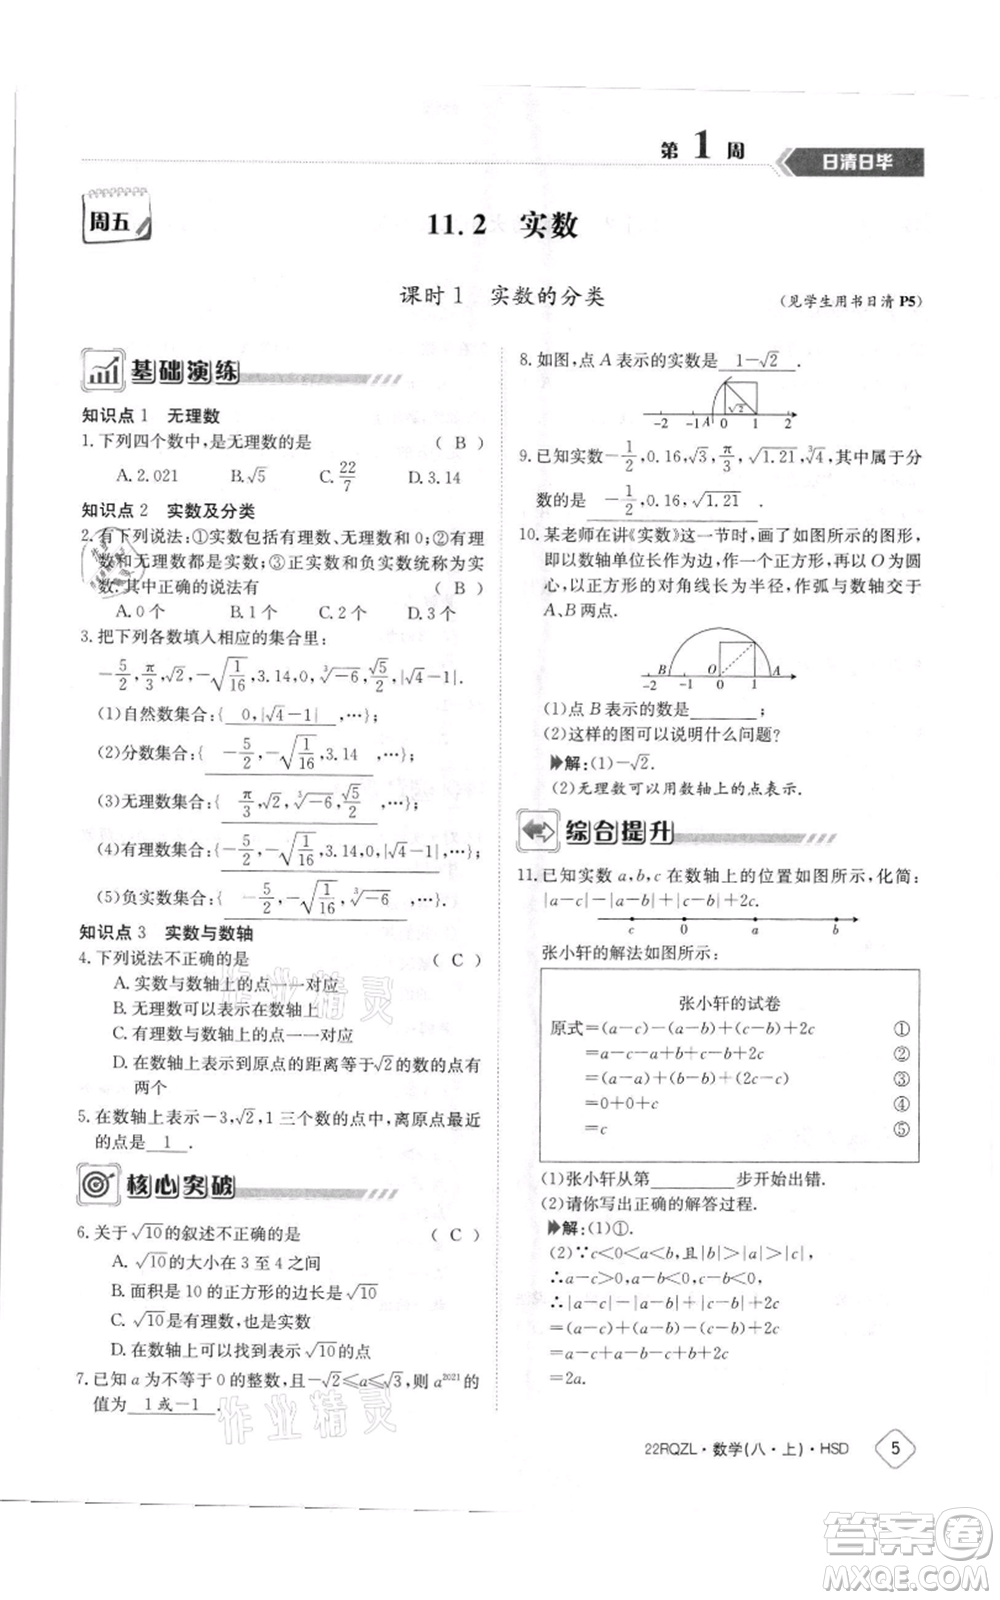 第 1 周
日清日毕
周五
11.2 实数
课时1 实数的分类
(见学生用书日清 P5)
基础演练
知识点1 无理数
1. 下列四个数中,是无理数的是 ( B )
A. 2.021 B. √5 C. 22/7 D. 3.14
知识点2 实数及分类
2. 有下列说法:①实数包括有理数、无理数和0;②有理
数和无理数都是实数;③正实数和负实数统称为实
数. 其中正确的说法有 ( B )
A. 0个 B. 1个 C. 2个 D. 3个
3. 把下列各数填入相应的集合里:
-5/2, π/3, √2, -√(1/16), 3.14, 0, ³√-6, √5/2, |√4-1|.
(1)自然数集合:{ 0, |√4-1| ,…};
(2)分数集合:{ -5/2, -√(1/16), 3.14 ,…};
(3)无理数集合:{ π/3, √2, ³√-6, √5/2 ,…};
(4)有理数集合:{ -5/2, -√(1/16), 3.14, 0, |√4-1| ,…};
(5)负实数集合:{ -5/2, -√(1/16), ³√-6 ,…}.
知识点3 实数与数轴
4. 下列说法不正确的是 ( C )
A. 实数与数轴上的点一一对应
B. 无理数可以表示在数轴上
C. 有理数与数轴上的点一一对应
D. 在数轴上表示到原点的距离等于√2的数的点有
两个
5. 在数轴上表示-3,√2,1三个数的点中,离原点最近
的点是 1 .
核心突破
6. 关于√10的叙述不正确的是 ( C )
A. √10的大小在3至4之间
B. 面积是10的正方形的边长是√10
C. √10是有理数,也是实数
D. 在数轴上可以找到表示√10的点
7. 已知a为不等于0的整数,且-√2≤a≤√3,则a²⁰²¹的
值为 1或-1 .
8. 如图,点A表示的实数是 1-√2 .
√2
-2 -1 A 0 1 2
9. 已知实数-1/2, 0.16, √3, π/3, √1.21, ³√4,其中属于分
数的是 -1/2, 0.16, √1.21 .
10. 某老师在讲《实数》这一节时,画了如图所示的图形,
即以单位长作为边长画一个正方形,然后以O为圆
心,以正方形的对角线长为半径,作弧与数轴交于
A,B两点.
B O A
-2 -1 0 1
(1)点B表示的数是 ;
(2)这样的图可以说明什么问题?
解:(1)-√2.
(2)无理数可以用数轴上的点表示.
综合提升
11. 已知实数a,b,c在数轴上的位置如图所示,化简:
|a-c|-|a-b|+|c-b|+2c.
c 0 a b
张小轩的解法如图所示:
张小轩的试卷
原式=(a-c)-(a-b)+(c-b)+2c ①
=a-c-a+b+c-b+2c ②
=(a-a)+(b-b)+(-c-c+2c) ③
=0+0+c ④
=c ⑤
(1)张小轩从第 步开始出错;
(2)请你写出正确的解答过程.
解:(1)①.
(2)∵c<0<a<b,|b|>|a|>|c|,
∴a-c>0,a-b<0,c-b<0,
∴|a-c|-|a-b|+|c-b|+2c
=(a-c)+(a-b)-(c-b)+2c
=a-c+a-b-c+b+2c
=2a.
22RQZL·数学(八·上)·HSD
5
作业精灵
作业精灵
答案卷